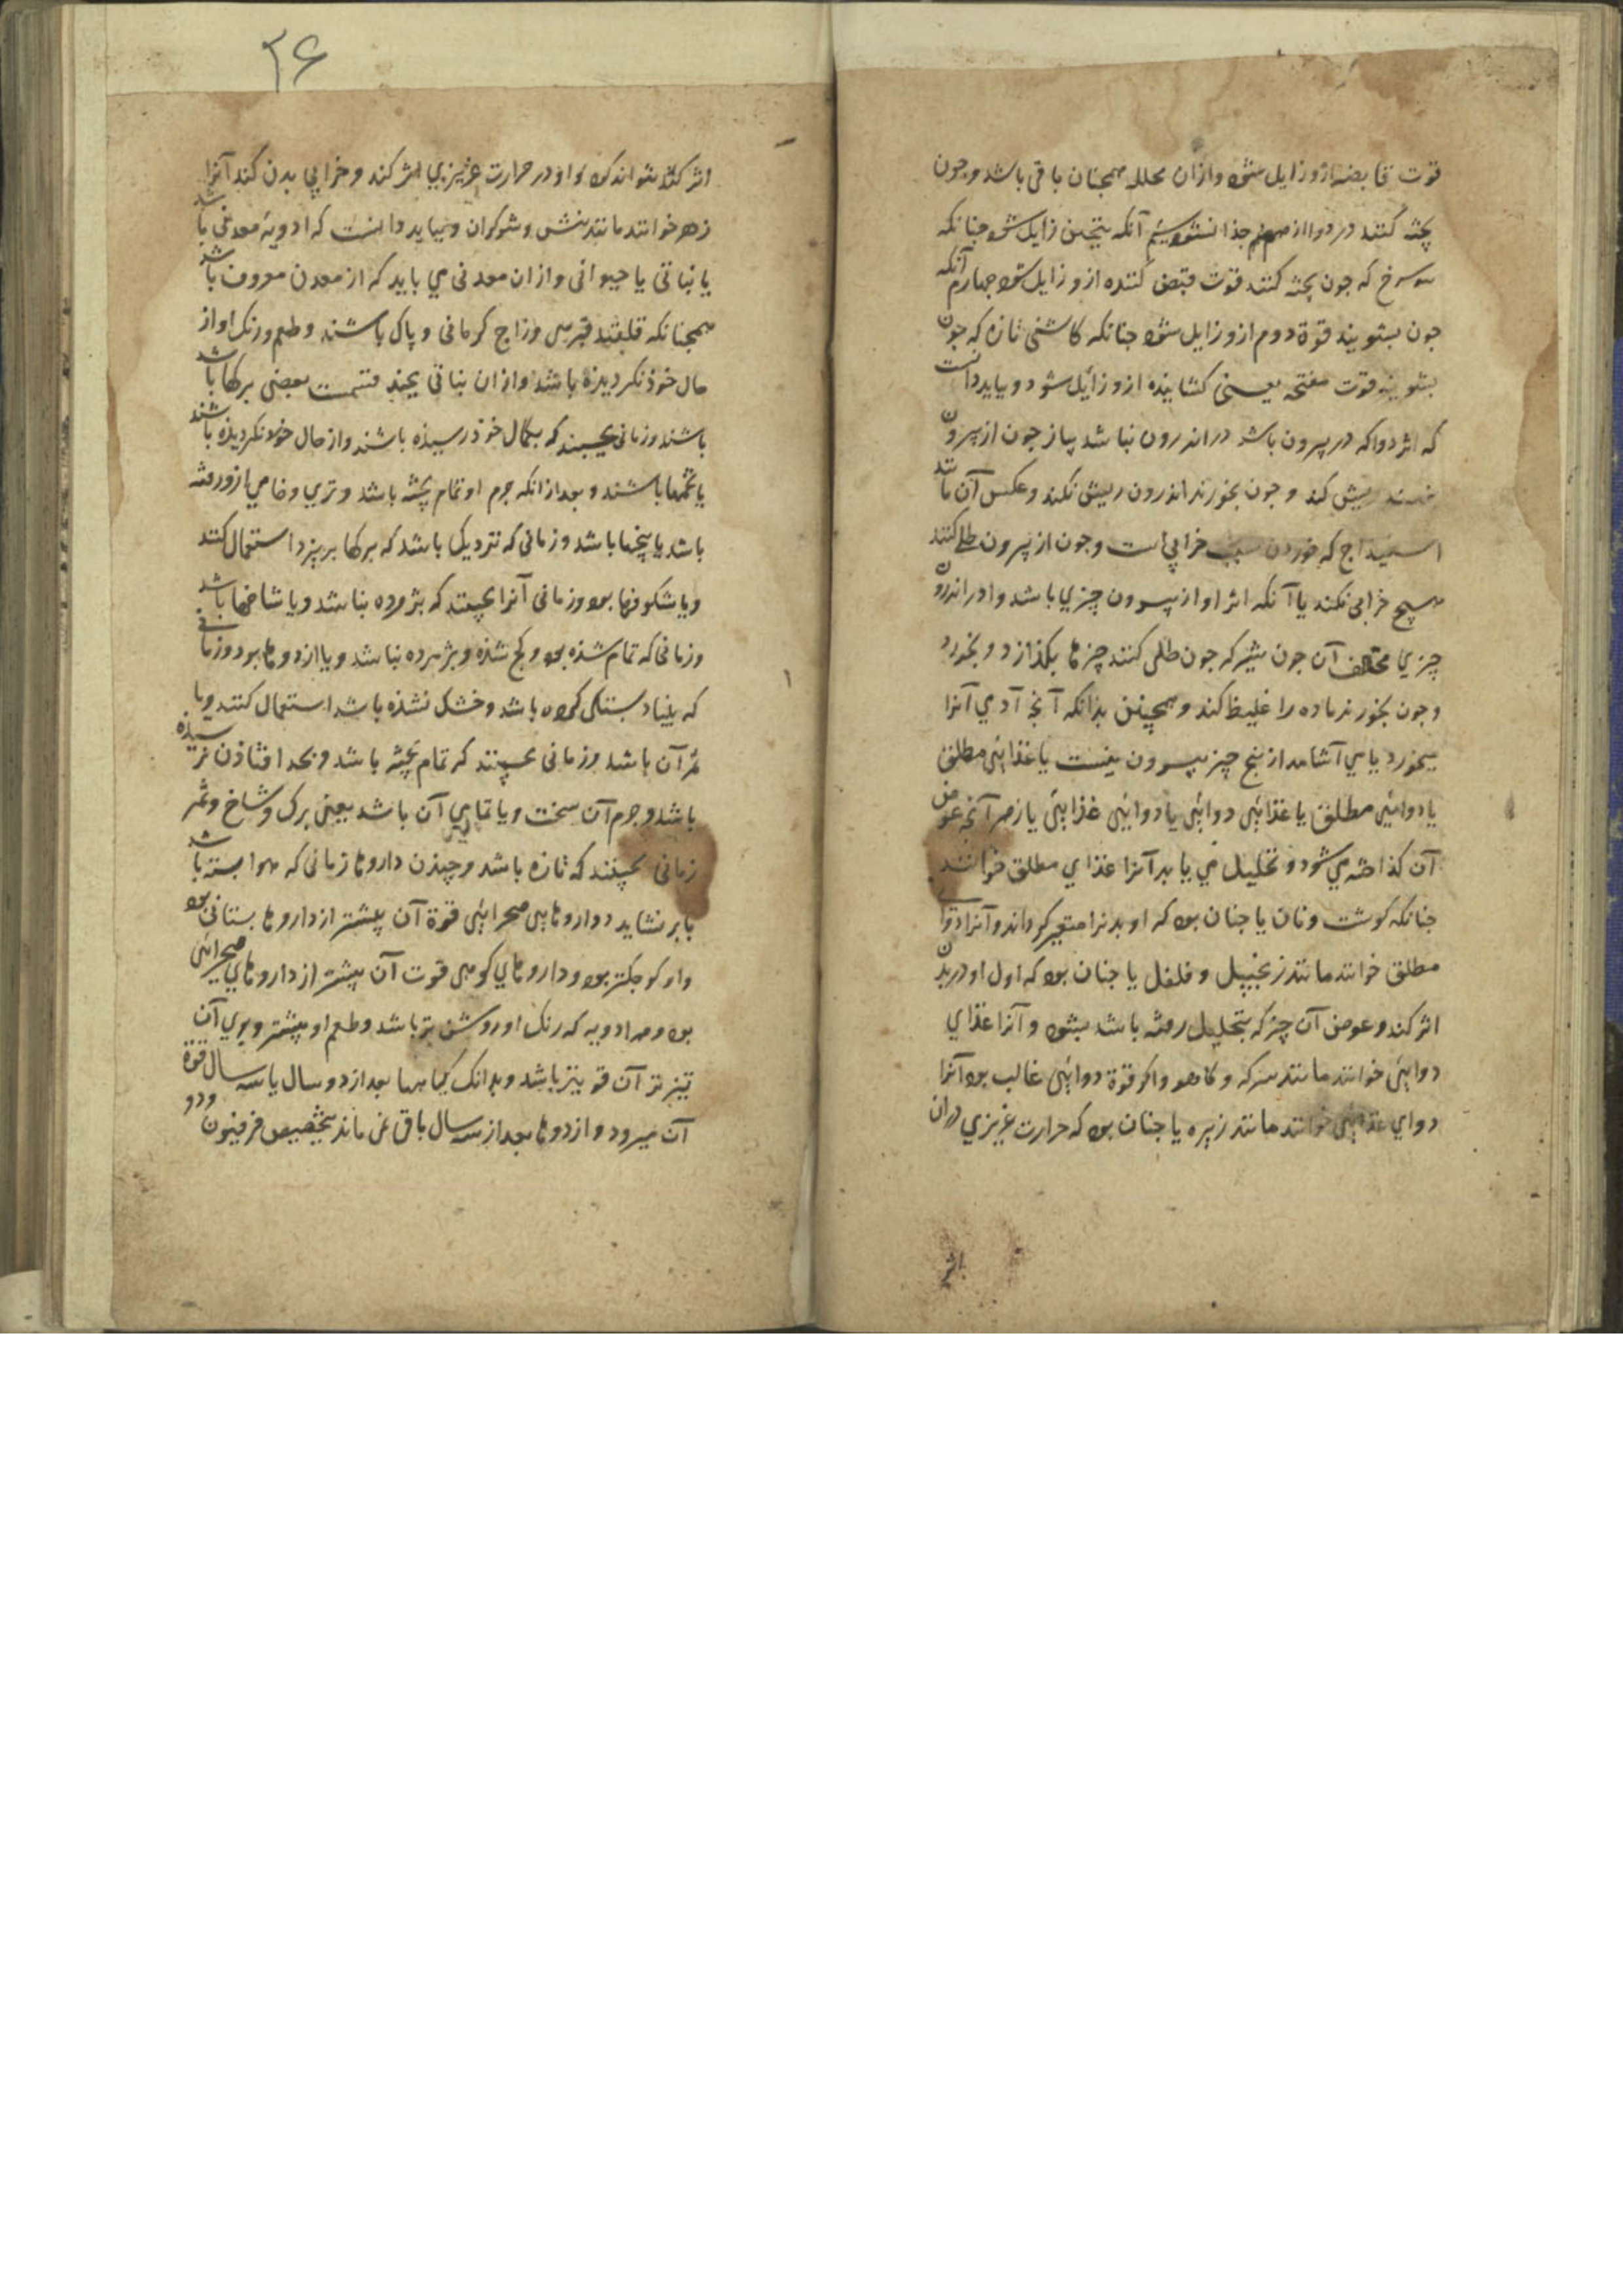 قوت قابضه ازو زایل شود وازان محلله همچنان باقی باشد وجون
پخته کنند در دوا از هم جذا نشود سیم آنکه بپختن زایل شود جنانکه
سرخ که جون پخته کنند قوت قبض کننده ازو زایل شود جهارم آنکه
جون بشویند قوة دوم ازو زایل شود جنانکه کاشنی تازه که جون
بشویند قوت مفتحه یعنی کشاینده ازو زایل شود و بباید دانست
که اثر دوا که در بیرون باشد در اندرون نباشد پیاز جون از بیرون
ریش کند و جون بخورند اندرون ریش نکند وعکس آن مانند
اسفیداج که خوردن سبب خرابی است وجون از بیرون طلی کنند
هیچ خرابی نکند یا آنکه اثر او از بیرون چیزی باشد و در اندرون
چیزی مخالف آن جون شیر که جون طلی کنند چیزها بکذازد و بخورد
وجون بخورند ماده را غلیظ کند و همچنین بدانکه آنج آدمی آنرا
میخورد یا می آشامد از پنج چیز بیرون نیست یا غذایی مطلق
یا دوایی مطلق یا غذایی دوایی یا دوایی غذایی یا زهر آنچه عوض
آن کذاخته می شود و تحلیل می یابد آنرا غذای مطلق خوانند
جنانکه کوشت ونان یا جنان بود که او بدنرا متغیر کرداند وآنرا دوای
مطلق خوانند مانند زنجبیل و فلفل یا جنان بود که اول او در بدن
اثر کند وعوض آن چیز که بتحلیل رفته باشد بشود و آنرا غذای
دوایی خوانند مانند سرکه و کاهو واکر قوة دوایی غالب بود آنرا
دوای غذایی خوانند مانند زیره یا جنان بود که حرارت غریزی دران
اثر
۲۶
اثر کند نتواند کرد و او در حرارت غریزی اثر کند و خرابی بدن کند آنرا
زهر خوانند مانند بیش وشوکران و بباید دانست که ادویه معدنی باشد
یا نباتی یا حیوانی وازان معدنی می باید که از معدن معروف باشد
همچنانکه قلقند قبرسی وزاج کرمانی و پاک باشند وطعم ورنک او از
حال خوذ نکردیده باشد وازان نباتی بعضی برکها باشد
باشند وزمانی بچینند که بکمال خوذ رسیده باشند واز حال خوذ نکردیذه باشند
یا تخمها باشند و بعد ازانکه جرم او تمام پخته باشد و تری وخامی ازو رفته
باشد یا بیخها باشد وزمانی که نزدیک باشد که برکها بریزد استعمال کنند
ویا شکوفها بود وزمانی آنرا بچینند که پژمرده نباشد ویا شاخها باشد
وزمانی که تمام شذه بود و کج نشذه وپژمرده نباشد ویا ازدوها بود وزمانی
که بنیاد بستکی کرده باشد وخشک نشذه باشد استعمال کنند ویا
ثمر آن باشد وزمانی بچینند که تمام پخته باشد وبحد افتاذن نرسیذه
باشد وجرم آن سخت ویا تمامی آن باشد یعنی برک وشاخ وثمر
زمانی بچینند که تازه باشد وچیذن داروها زمانی که هوا بسته باشد
یا بر نشاید و داروهایی صحرایی قوة آن بیشتر از داروها بستانی بود
واو کوجکتر بود و داروهای کوهی قوت آن بیشتر از داروهای صحرایی
بود وهر ادویه که رنک او روشن تر باشد وطعم او بیشتر وبوی آن
تیزتر آن قویتر باشد وبدانک کیاهها بعد از دو سال یا سه سال قوة
آن میرود و ازدوها بعد از سه سال باقی نمی ماند بتخصیص فرفیون ودو